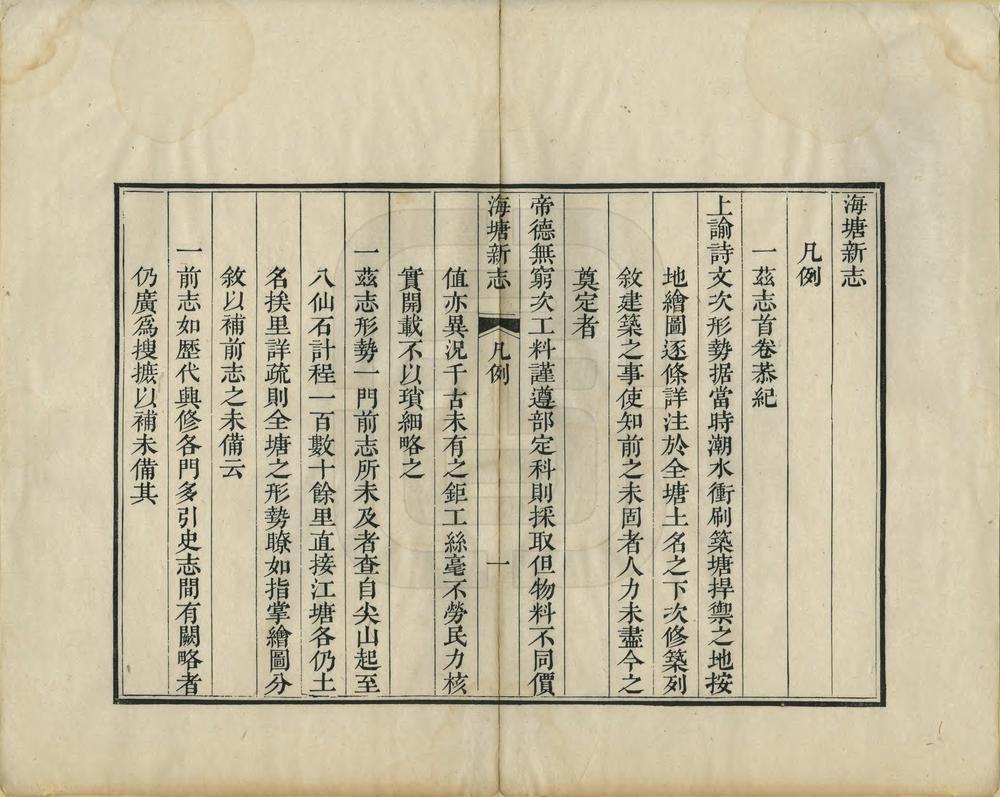 海塘新志
凡例
一茲志首卷恭紀
上諭詩文次形勢据當時潮水衝刷築塘捍禦之地按
地繪圖逐條詳注於全塘土名之下次修築列
敘建築之事使知前之未固者人力未盡今之
奠定者
帝德無窮次工料謹遵部定科則採取但物料不同價
海塘新志
凡例
一
值亦異況千古未有之鉅工絲毫不勞民力核
實開載不以瑣細略之
一茲志形勢一門前志所未及者查自尖山起至
八仙石計程一百數十餘里直接江塘各仍土
名挨里詳疏則全塘之形勢瞭如指掌繪圖分
敘以補前志之未備云
一前志如歷代興修各門多引史志間有闕略者
仍廣爲搜摭以補未備其